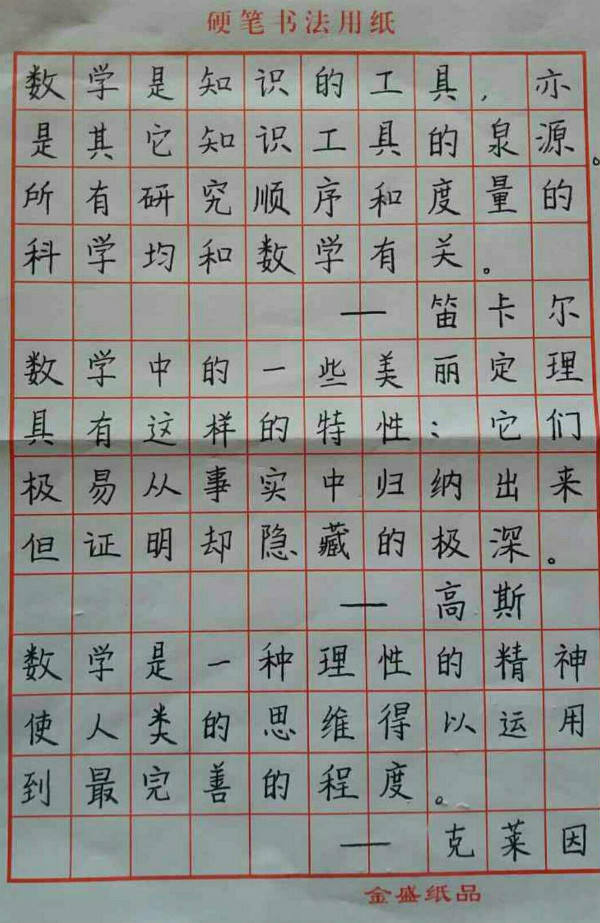 硬笔书法用纸
数学是知识的工具,亦
是其它知识工具的泉源。
所有研究顺序和度量的
科学均和数学有关。
——笛卡尔
数学中的一些美丽定理
具有这样的特性:它们
极易从事实中归纳出来
但证明却隐藏的极深。
——高斯
数学是一种理性的精神
使人类的思维得以运用
到最完善的程度。
——克莱因
金盛纸品